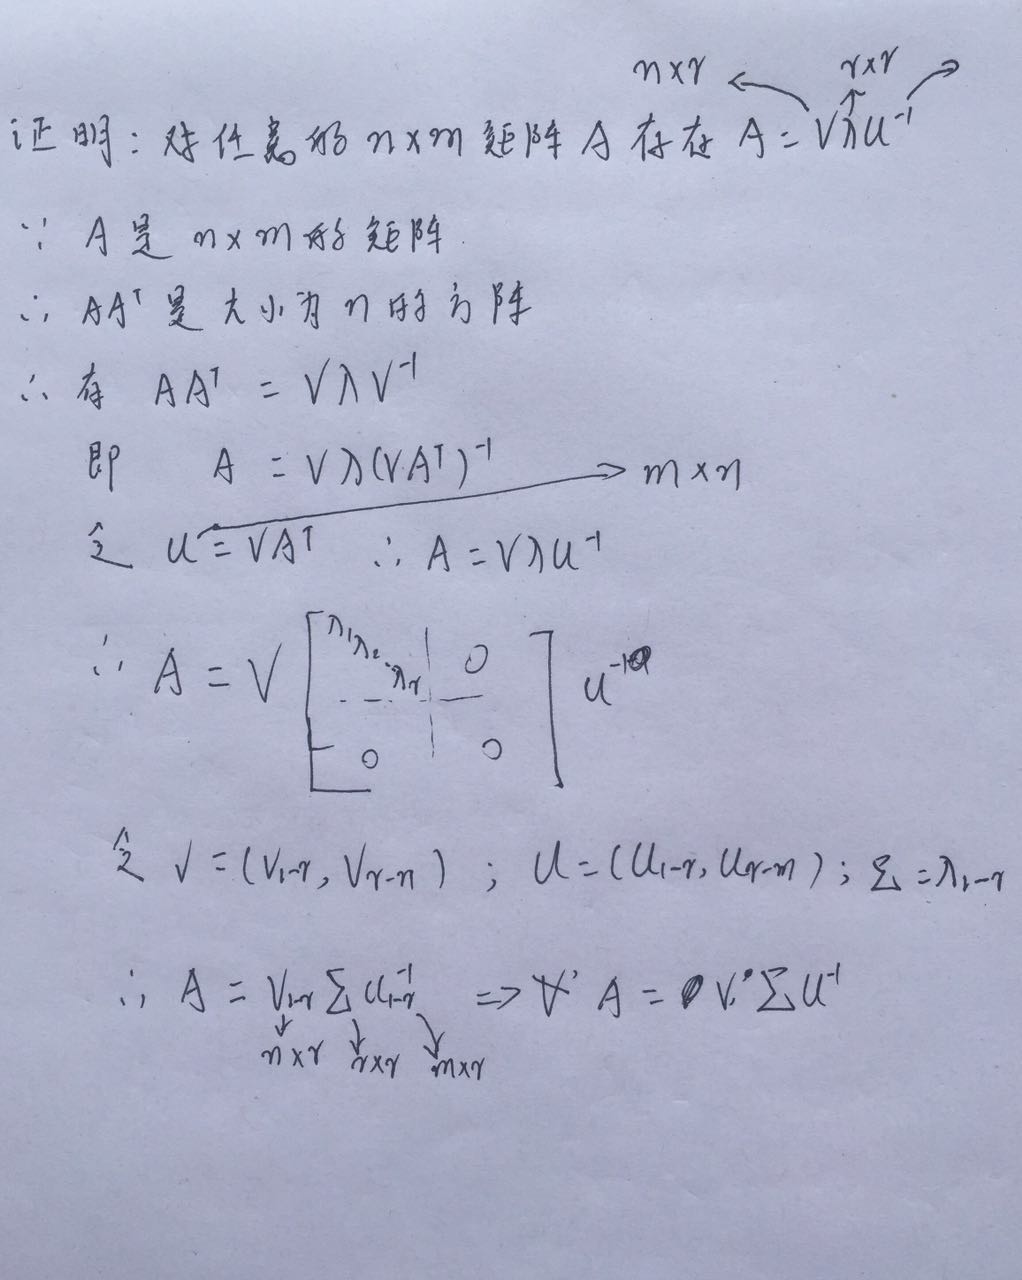 n×r r×r
证明：对任意的 n×m 矩阵 A 存在 A = VλU⁻¹
∵ A 是 n×m 的矩阵
∴ AAᵀ 是大小为 n 的方阵
∴ 有 AAᵀ = VλV⁻¹
即 A = Vλ(VAᵀ)⁻¹ m×n
令 U = VAᵀ ∴ A = VλU⁻¹
λ₁λ₂..λᵣ 0
∴ A = V [ ] U⁻¹
0 0
令 V = (V₁₋ᵣ, Vᵣ₋ₙ) ; U = (U₁₋ᵣ, Uᵣ₋ₘ) ; Σ = λ₁₋ᵣ
∴ A = V₁₋ᵣ Σ U₁₋ᵣ⁻¹ => A = V Σ U⁻¹
n×r r×r m×r